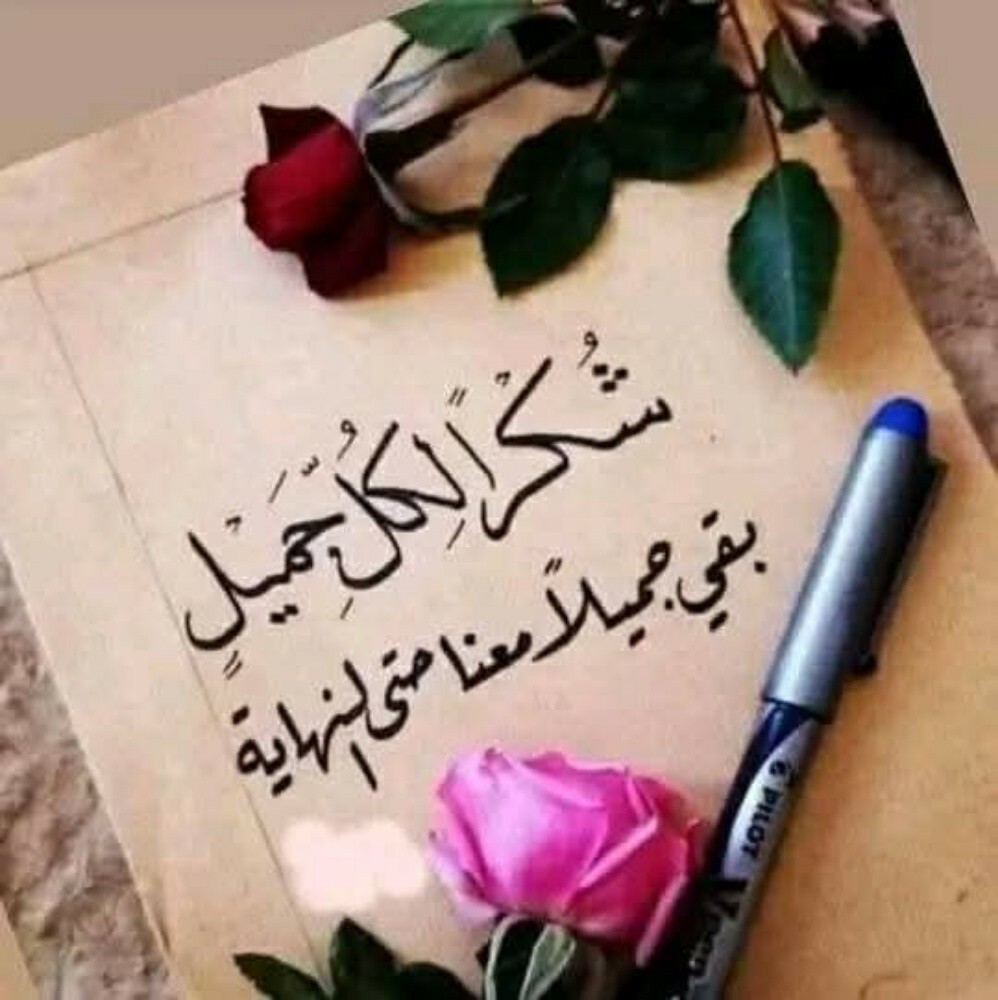 شُكْراً لِكُلِّ جَمَيْلٍ
بقي جميلاً معنا حتى النهاية
PILOT